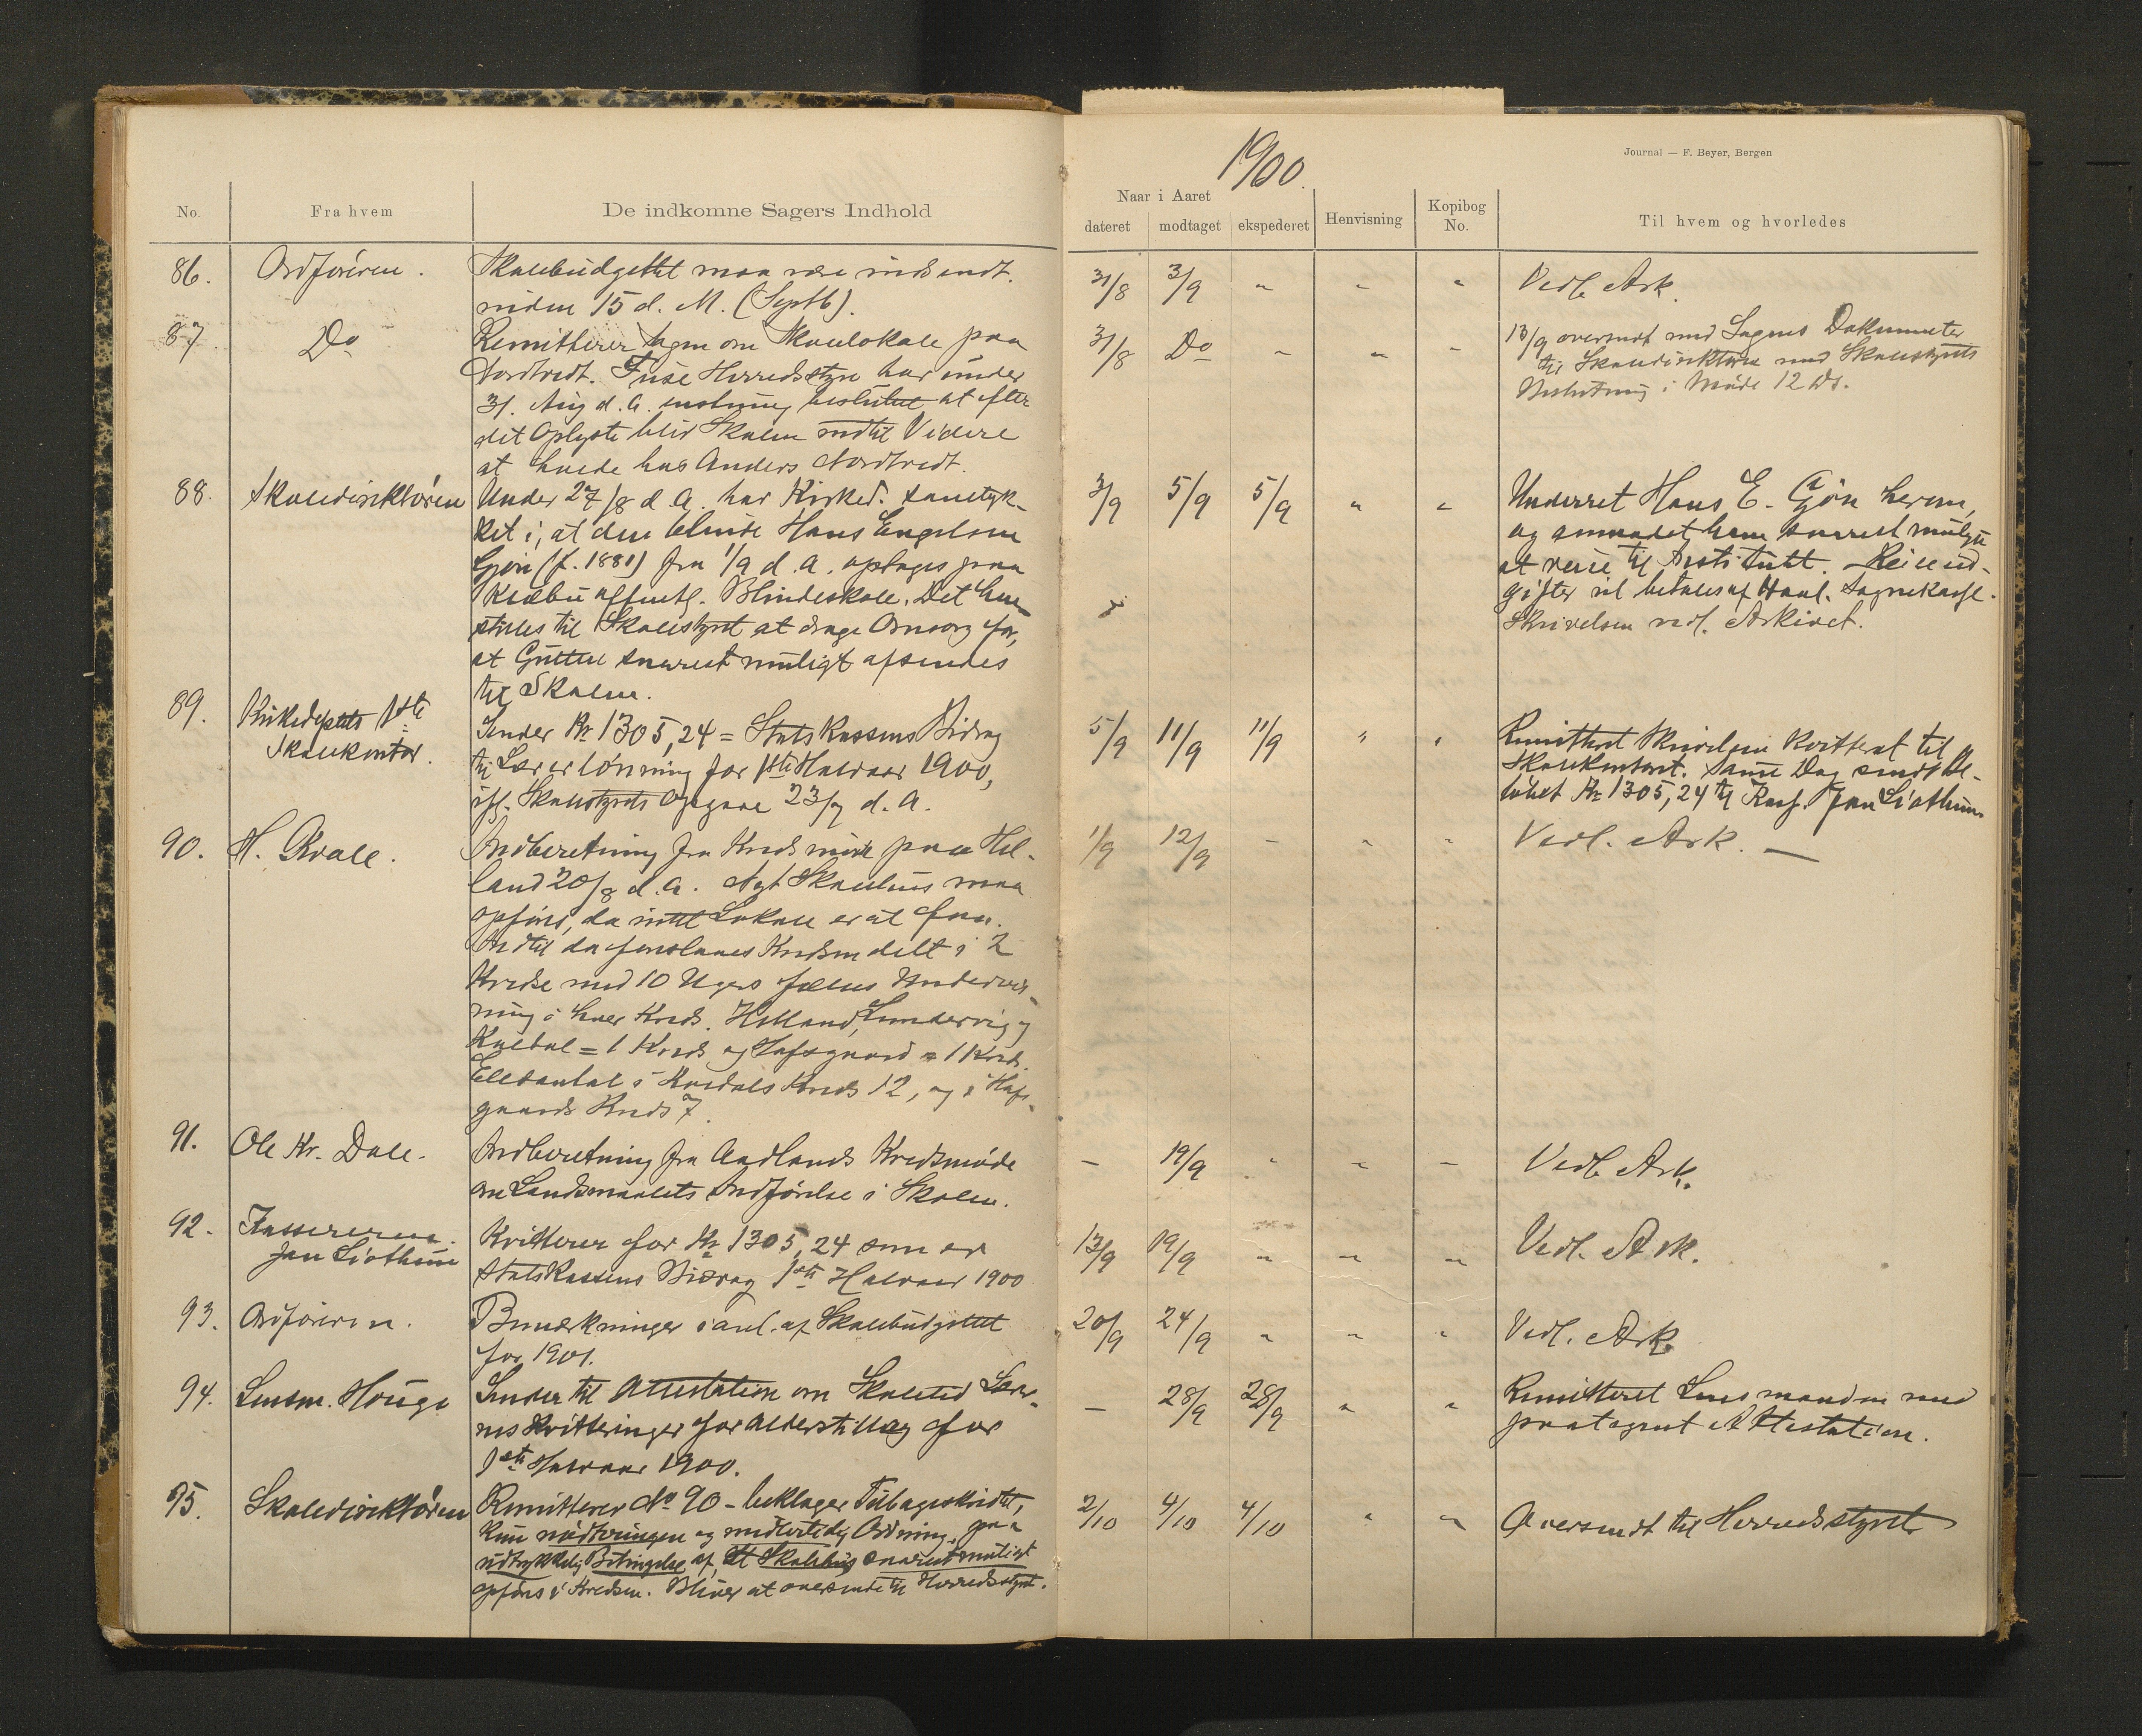 1900.
Journal — F. Beyer, Bergen
No.
Fra hvem
De indkomne Sagers Indhold
Naar i Aaret
dateret
modtaget
ekspederet
Henvisning
Kopibog
No.
Til hvem og hvorledes
86.
Ordføreren.
Skolebudgettet maa være indsendt
inden 15 d. M. (Septb).
31/8
3/9
"
"
"
Vedl. Ark.
87
Do
Remitterer Sagen om Skolelokale paa
Nordtvedt. Fuse Herredsstyre har under
31. Aug d. A. enstemmig besluttet at efter
det Oplyste blir Skolen indtil Videre
at holde hos Anders Nordtvedt.
31/8
Do
"
"
"
13/9 oversendt med Sagens Dokumenter
til Skoledirektøren med Skolestyrets
Beslutning i Møde 12 ds.
88.
Skoledirektøren
Under 27/8 d. A. har Kirked. samtyk-
ket i, at den blinde Hans Engelsen
Gjøn (f. 1881) fra 1/9 d. A. optages paa
Klæbu offentl. Blindeskole. Det hen-
stilles til Skolestyret at drage Omsorg for,
at Gutten snarest muligt afsendes
til Skolen.
3/9
5/9
5/9
"
"
Underret Hans E. Gjøn herom,
og anmodet ham snarest muligt
at reise til Institutt. Reiseud-
gifter vil betales af Haal. Sognekasse.
Skrivelsen vedl. Arkivet.
89.
Kirkedeptets 1ste
Skolekontor.
Sender Kr 1305,24 = Statskassens Bidrag
til Lærerlønning for 1ste Halvaar 1900,
ifl. Skolestyrets Opgave 23/7 d. A.
5/9
11/9
11/9
"
"
Remitteret Skrivelsen kvitteret til
Skolekontoret. Samme Dag sendt Be-
løbet Kr 1305,24 til Kass. Jan Liothun.
90.
H. Kvale.
Indberetning fra Kredsmøde paa Hel-
land 20/8 d. A. Nyt Skolehus maa
opføres, da intet Lokale er at faa.
Indtil da foreslaaes Kredsen delt i 2
Kredse med 10 Ugers fælles Undervis-
ning i hver Kreds. Helland, Sundervig og
= 1 Kreds og Hafsgaard = 1 Kreds.
Elevantal i Kreds 12, og i Hafs-
gaards Kreds 7.
1/9
12/9
-
"
"
Vedl. Ark. —
91.
Ole Kr. Dale.
Indberetning fra Aadlands Kredsmøde
om Landsmaalets Indførelse i Skolen.
-
19/9
"
"
-
Vedl. Ark.
92.
Kassereren
Jan Liothun
Kvitterer for Kr 1305,24 som er
Statskassens Bidrag 1ste Halvaar 1900
13/9
19/9
"
"
"
Vedl. Ark.
93.
Ordføreren.
Bemærkninger i anl. af Skolebudgettet
for 1901.
20/9
24/9
"
"
"
Vedl. Ark.
94.
Lensm. Houge
Sender til Attestation om Skoletid Lærer-
nes Kvitteringer for Alderstillæg for
1ste Halvaar 1900.
-
28/9
28/9
"
"
Remitteret Lensmanden med
paategnet Attestation.
95.
Skoledirektøren
Remitterer No 90 - beklager Tilbageskridtet,
kun nødtvungen og midlertidig Ordning, paa
udtrykkelig Betingelse af, at Skolehus snarest muligt
opføres i Kredsen. Bliver at oversende til Herredsstyret.
2/10
4/10
4/10
"
"
Oversendt til Herredsstyret